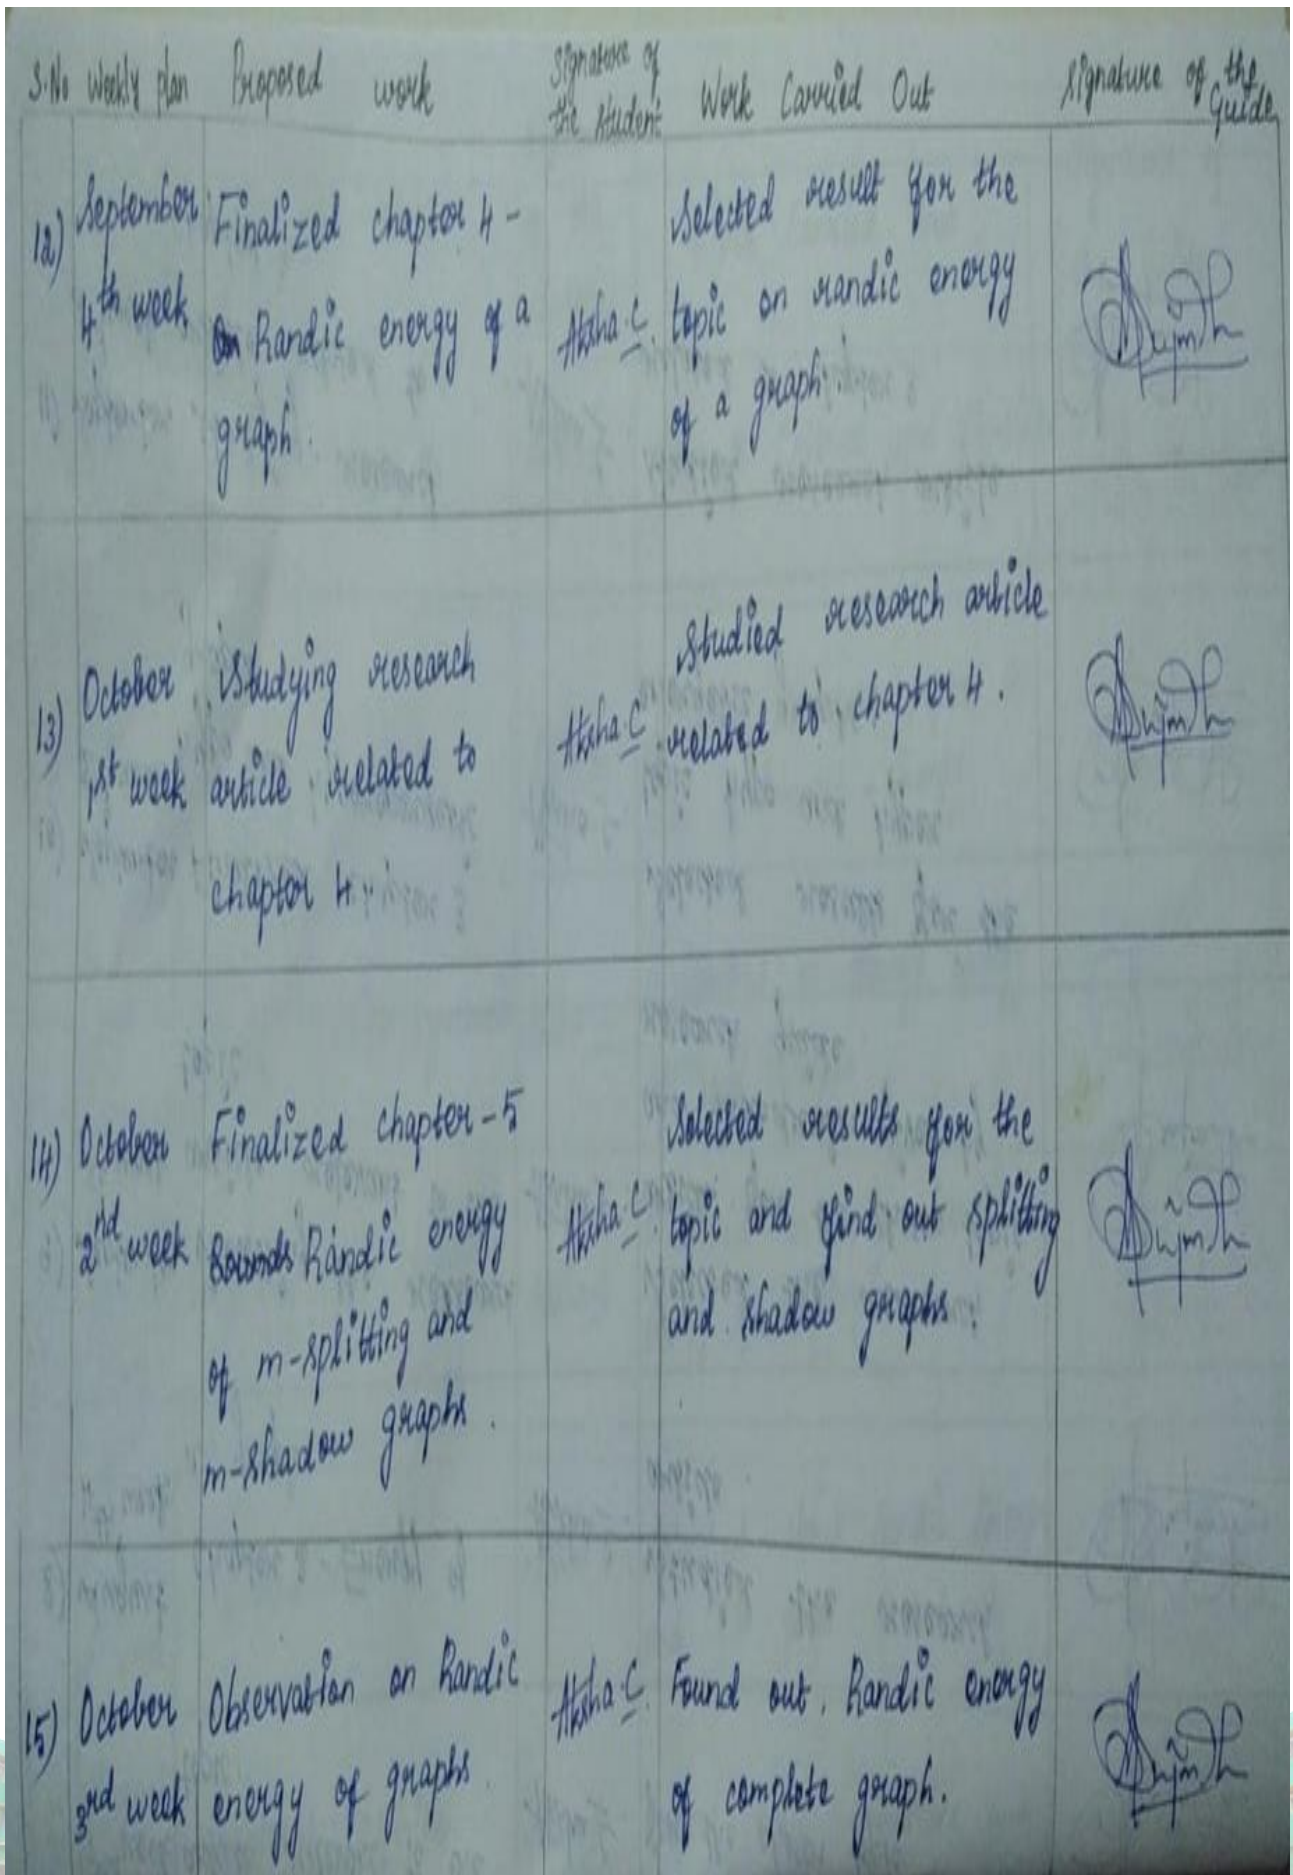 S.No Weekly plan Proposed work Signature of the student Work Carried Out Signature of the Guide
12)
September
4th week
Finalized chapter 4 -
Randic energy of a
graph.
Aksha.C.
Selected result for the
topic on randic energy
of a graph.
13)
October
1st week
Studying research
article related to
chapter 4.
Aksha.C
Studied research article
related to chapter 4.
14)
October
2nd week
Finalized chapter-5
Randic energy
of m-splitting and
m-shadow graphs.
Aksha.C.
Selected results for the
topic and find out splitting
and shadow graphs.
15)
October
3rd week
Observation on Randic
energy of graphs
Aksha.C.
Found out. Randic energy
of complete graph.